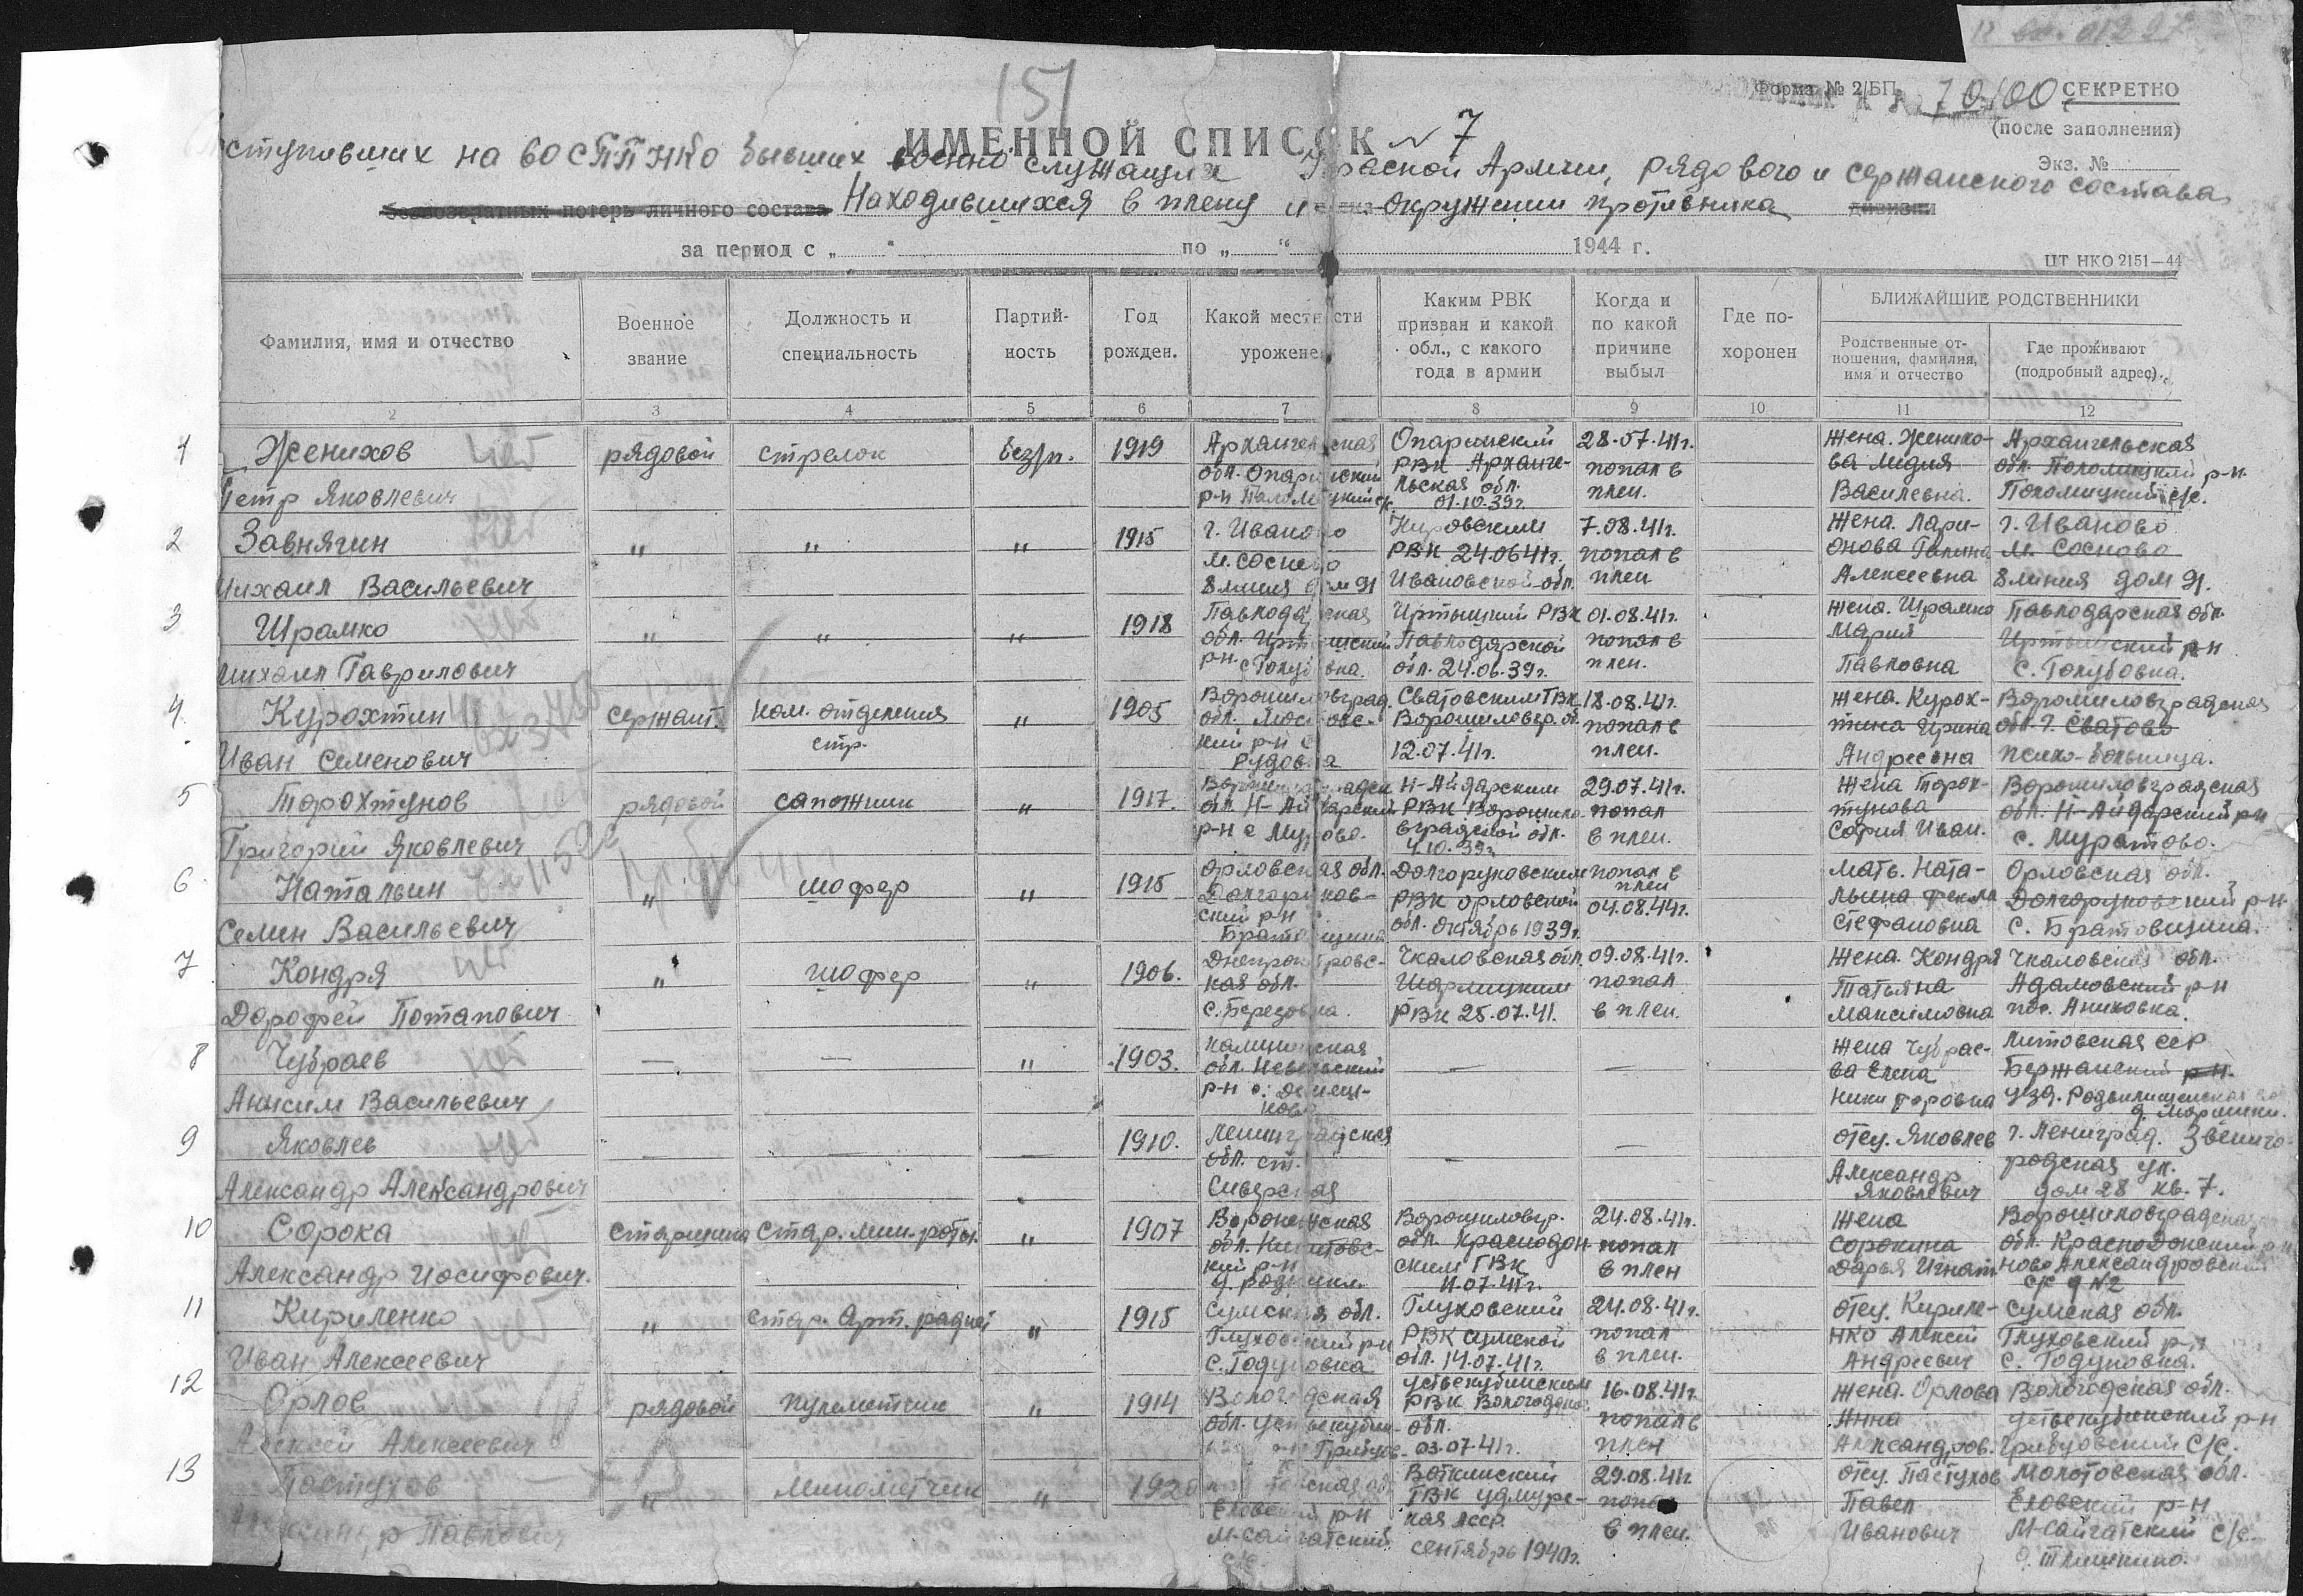 151
Форма № 2/БП
70100 СЕКРЕТНО
(после заполнения)
Экз. №
ИМЕННОЙ СПИСОК №7
на 60 СППНКО бывших военно служащих Красной Армии, рядового и сержанского состава
безвозвратных потерь личного состава Находившихся в плену и окружении противника дивизии
за период с „ “ по „ “ 1944 г.
ЦТ НКО 2151—44
Фамилия, имя и отчество
Военное звание
Должность и специальность
Партийность
Год рожден.
Какой местности уроженец
Каким РВК призван и какой обл., с какого года в армии
Когда и по какой причине выбыл
Где похоронен
БЛИЖАЙШИЕ РОДСТВЕННИКИ
Родственные отношения, фамилия, имя и отчество
Где проживают (подробный адрес).
2 3 4 5 6 7 8 9 10 11 12
1 Женихов рядовой стрелок без/п. 1919 Архангельская Опаринский 28.07.41г. жена. Женихо- Архангельская
обл. Опаринский РВК Арханге- попал в ва Лидия обл. р-н
Петр Яковлевич р-н льская обл. плен. Василевна. с/с.
01.10.39г.
2 Завнягин " " " 1915 г. Иваново Кировским 7.08.41г. жена. Лари- г. Иваново
м. Сосново РВК 24.06 41г. попал в онова Галина м. Сосново
Михаил Васильевич 8 линия дом 91 Ивановской обл. плен Алексеевна 8 линия дом 91.
3 Шрамко " " " 1918 Павлодарская Иртышский РВК 01.08.41г. жена. Шрамко Павлодарская обл.
обл. Иртышский Павлодарской попал в Мария Иртышский р-н
Михаил Гаврилович р-н. с Голубовка. обл. 24.06.39г. плен. Павловна с. Голубовка.
4. Курохтин сержант. ком. отделения " 1905 Ворошиловград. Сватовским ГВК 18.08.41г. жена. Курох- Ворошиловградская
стр. обл. Ворошиловгр. об. попал в тина Ирина обл. г. Сватово
Иван Семенович кий р-н с Рудовка 12.07.41г. плен. Андреевна психо-больница.
5 Торохтунов рядовой сапожник " 1917. Ворошиловградск Н-Айдарским 29.07.41г. жена Торох- Ворошиловградская
обл. Н-Айдарский РВК Ворошило- попал тунова обл. Н-Айдарский р-н
Григорий Яковлевич р-н с вградской обл. в плен. София Иван. с. Муратово.
4.10.39г.
6 Натальин " шофер " 1915 Орловская обл. Долгоруковским попал в мать. Ната- Орловская обл.
Долгоруков- РВК Орловской плен льина Фекла Долгоруковский р-н
Семен Васильевич ский р-н обл. Октябрь 1939г. 04.08.44г. Стефановна с. Братовщина.
Братовщина
7 Кондря " шофер " 1906. Днепропетровс- Чкаловская обл. 09.08.41г. жена. Кондря Чкаловская обл.
кая обл. попал Татьяна Адамовский р-н
Дорофей Потапович с. Березовка. РВК 25.07.41. в плен. Максимовна пос. Аниховка.
8 Чубраев — — " 1903. Калининская — — жена Чубрае- Литовская ССР
обл. Невельский ва Елена р-н.
Анисим Васильевич р-н Никифоровна уезд.
9 Яковлев — — 1910. Ленинградская — — отец. Яковлев г. Ленинград. Звениго-
обл. ст. Александр родская ул.
Александр Александрович Сиверская Яковлевич дом 28 кв. 7.
10 Сорока старшина стар. мин. роты. " 1907 Воронежская Ворошиловгр. 24.08.41г. жена Ворошиловградская
обл. обл. Краснодон- попал Сорокина обл. Краснодонский р-н
Александр Иосифович. кий р-н ским ГВК в плен Дарья Игнат. Ново Александровский
11.07.41г. с/с д №2
11 Кириленко " стар. Арт. " 1915 Сумская обл. Глуховский 24.08.41г. отец. Кириле- Сумская обл.
Глуховский р-н РВК Сумской попал нко Алексей Глуховский р-н
Иван Алексеевич с. Годуновка обл. 14.07.41г. в плен. Андреевич с. Годуновка.
12 Орлов рядовой пулеметчик " 1914 Вологодская Устькубинским 16.08.41г. жена. Орлова Вологодская обл.
обл. РВК Вологодской попал в Анна Устькубинский р-н
Алексей Алексеевич обл. 03.07.41г. плен Александров. с/с.
13 Пастухов " минометчик " Воткинский 29.08.41г отец. Пастухов Молотовская обл.
Еловский р-н ГВК Удмурт- попал Павел Еловский р-н
Павлович М-Сайгатский кая АССР. в плен. Иванович М-Сайгатский с/с.
с/с. сентябрь 1940г.